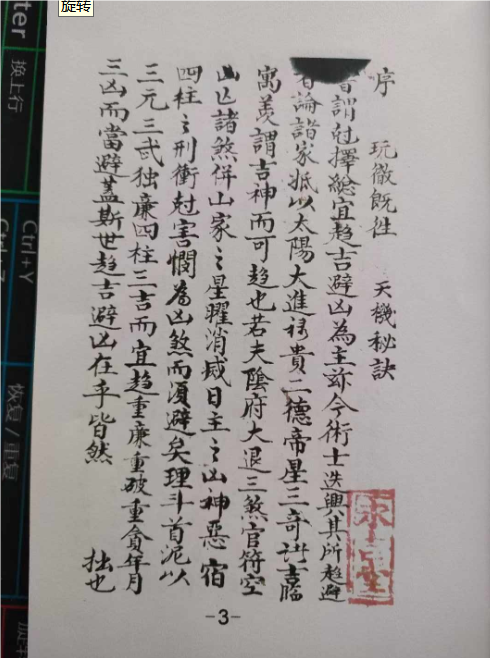 旋转
序 玩徹旣 天機秘訣
謂尅擇總宜趨吉避凶為主茲今術士迭興其所趨避
者論諸家抵以太陽大進祿貴二德帝星三奇諸吉臨
寓羡謂吉神而可趨也若夫陰府大退三煞官符空
亡諸煞併山家之星曜消滅日主之凶神惡宿
四柱之刑衝尅害憫為凶煞而須避矣理斗首泥以
三元三武独廉四柱三吉而宜趨重廉重破重貪年月
三凶而當避盖斯世趨吉避凶在乎皆然 拙也
-3-
ter
换上行
Ctrl+Y
恢复/重复